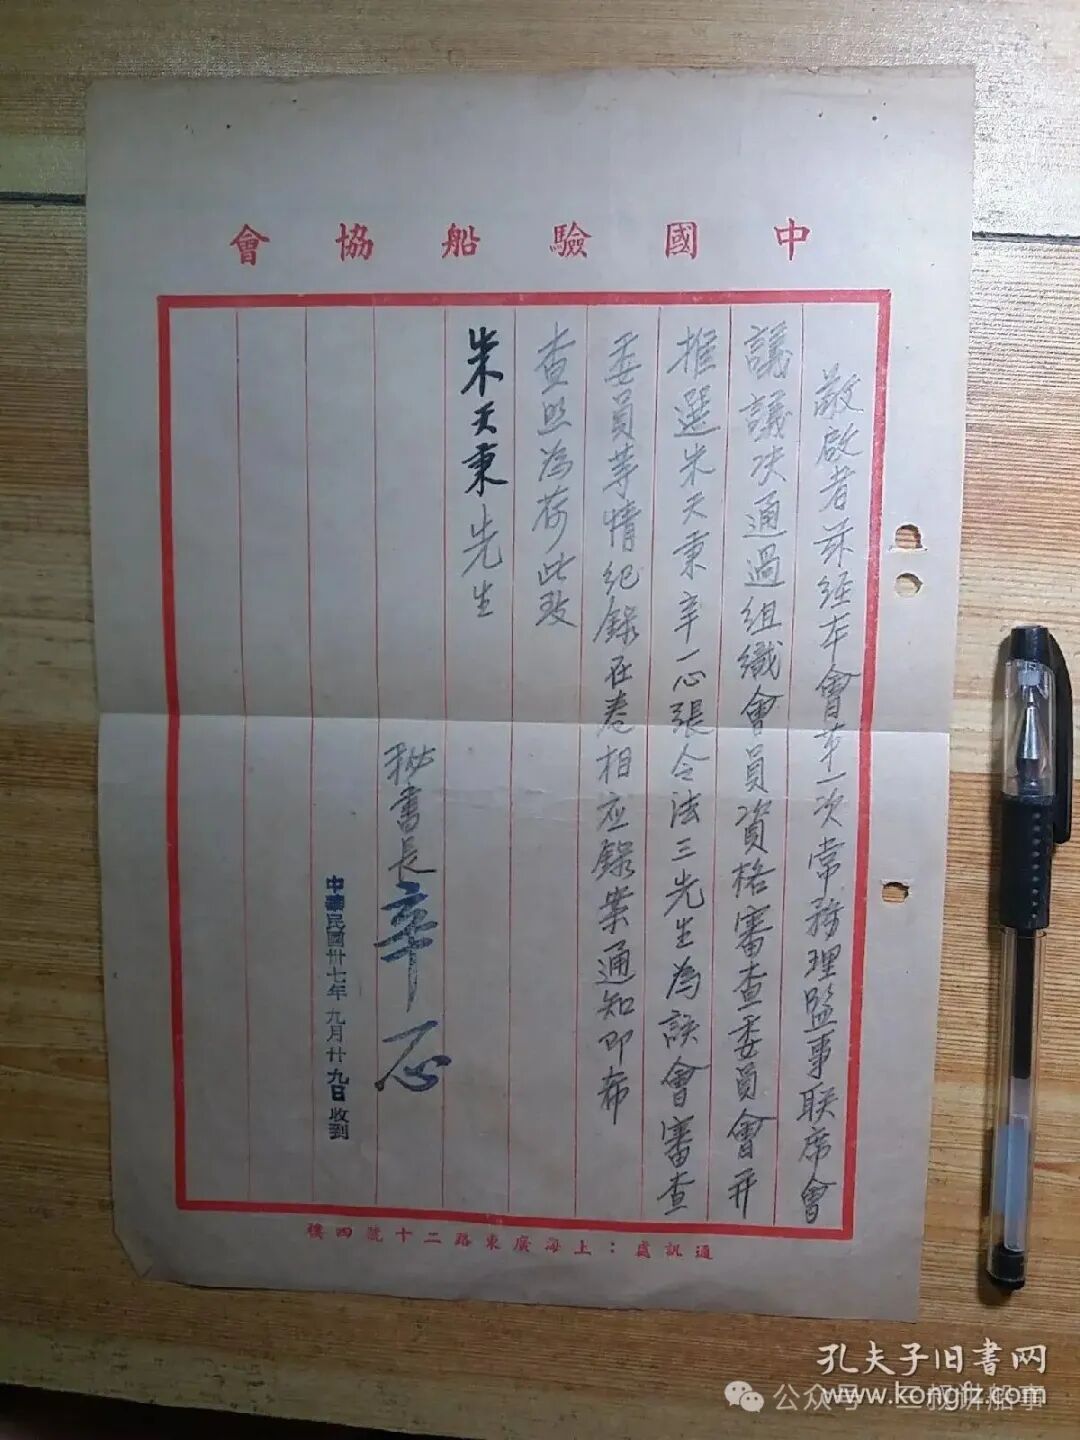 中國驗船協會
敬啟者茲經本會第一次常務理監事联席會
議議决通過組織會員資格審查委員會并
推選朱天秉辛一心張令法三先生為該會審查
委員等情纪錄在卷相应錄案通知即希
查照為荷此致
朱天秉先生
秘書長辛一心
中華民國卅七年九月廿九日收到
通訊處：上海廣東路二十號四樓
孔夫子旧書网
www.kongfz.com
公众号